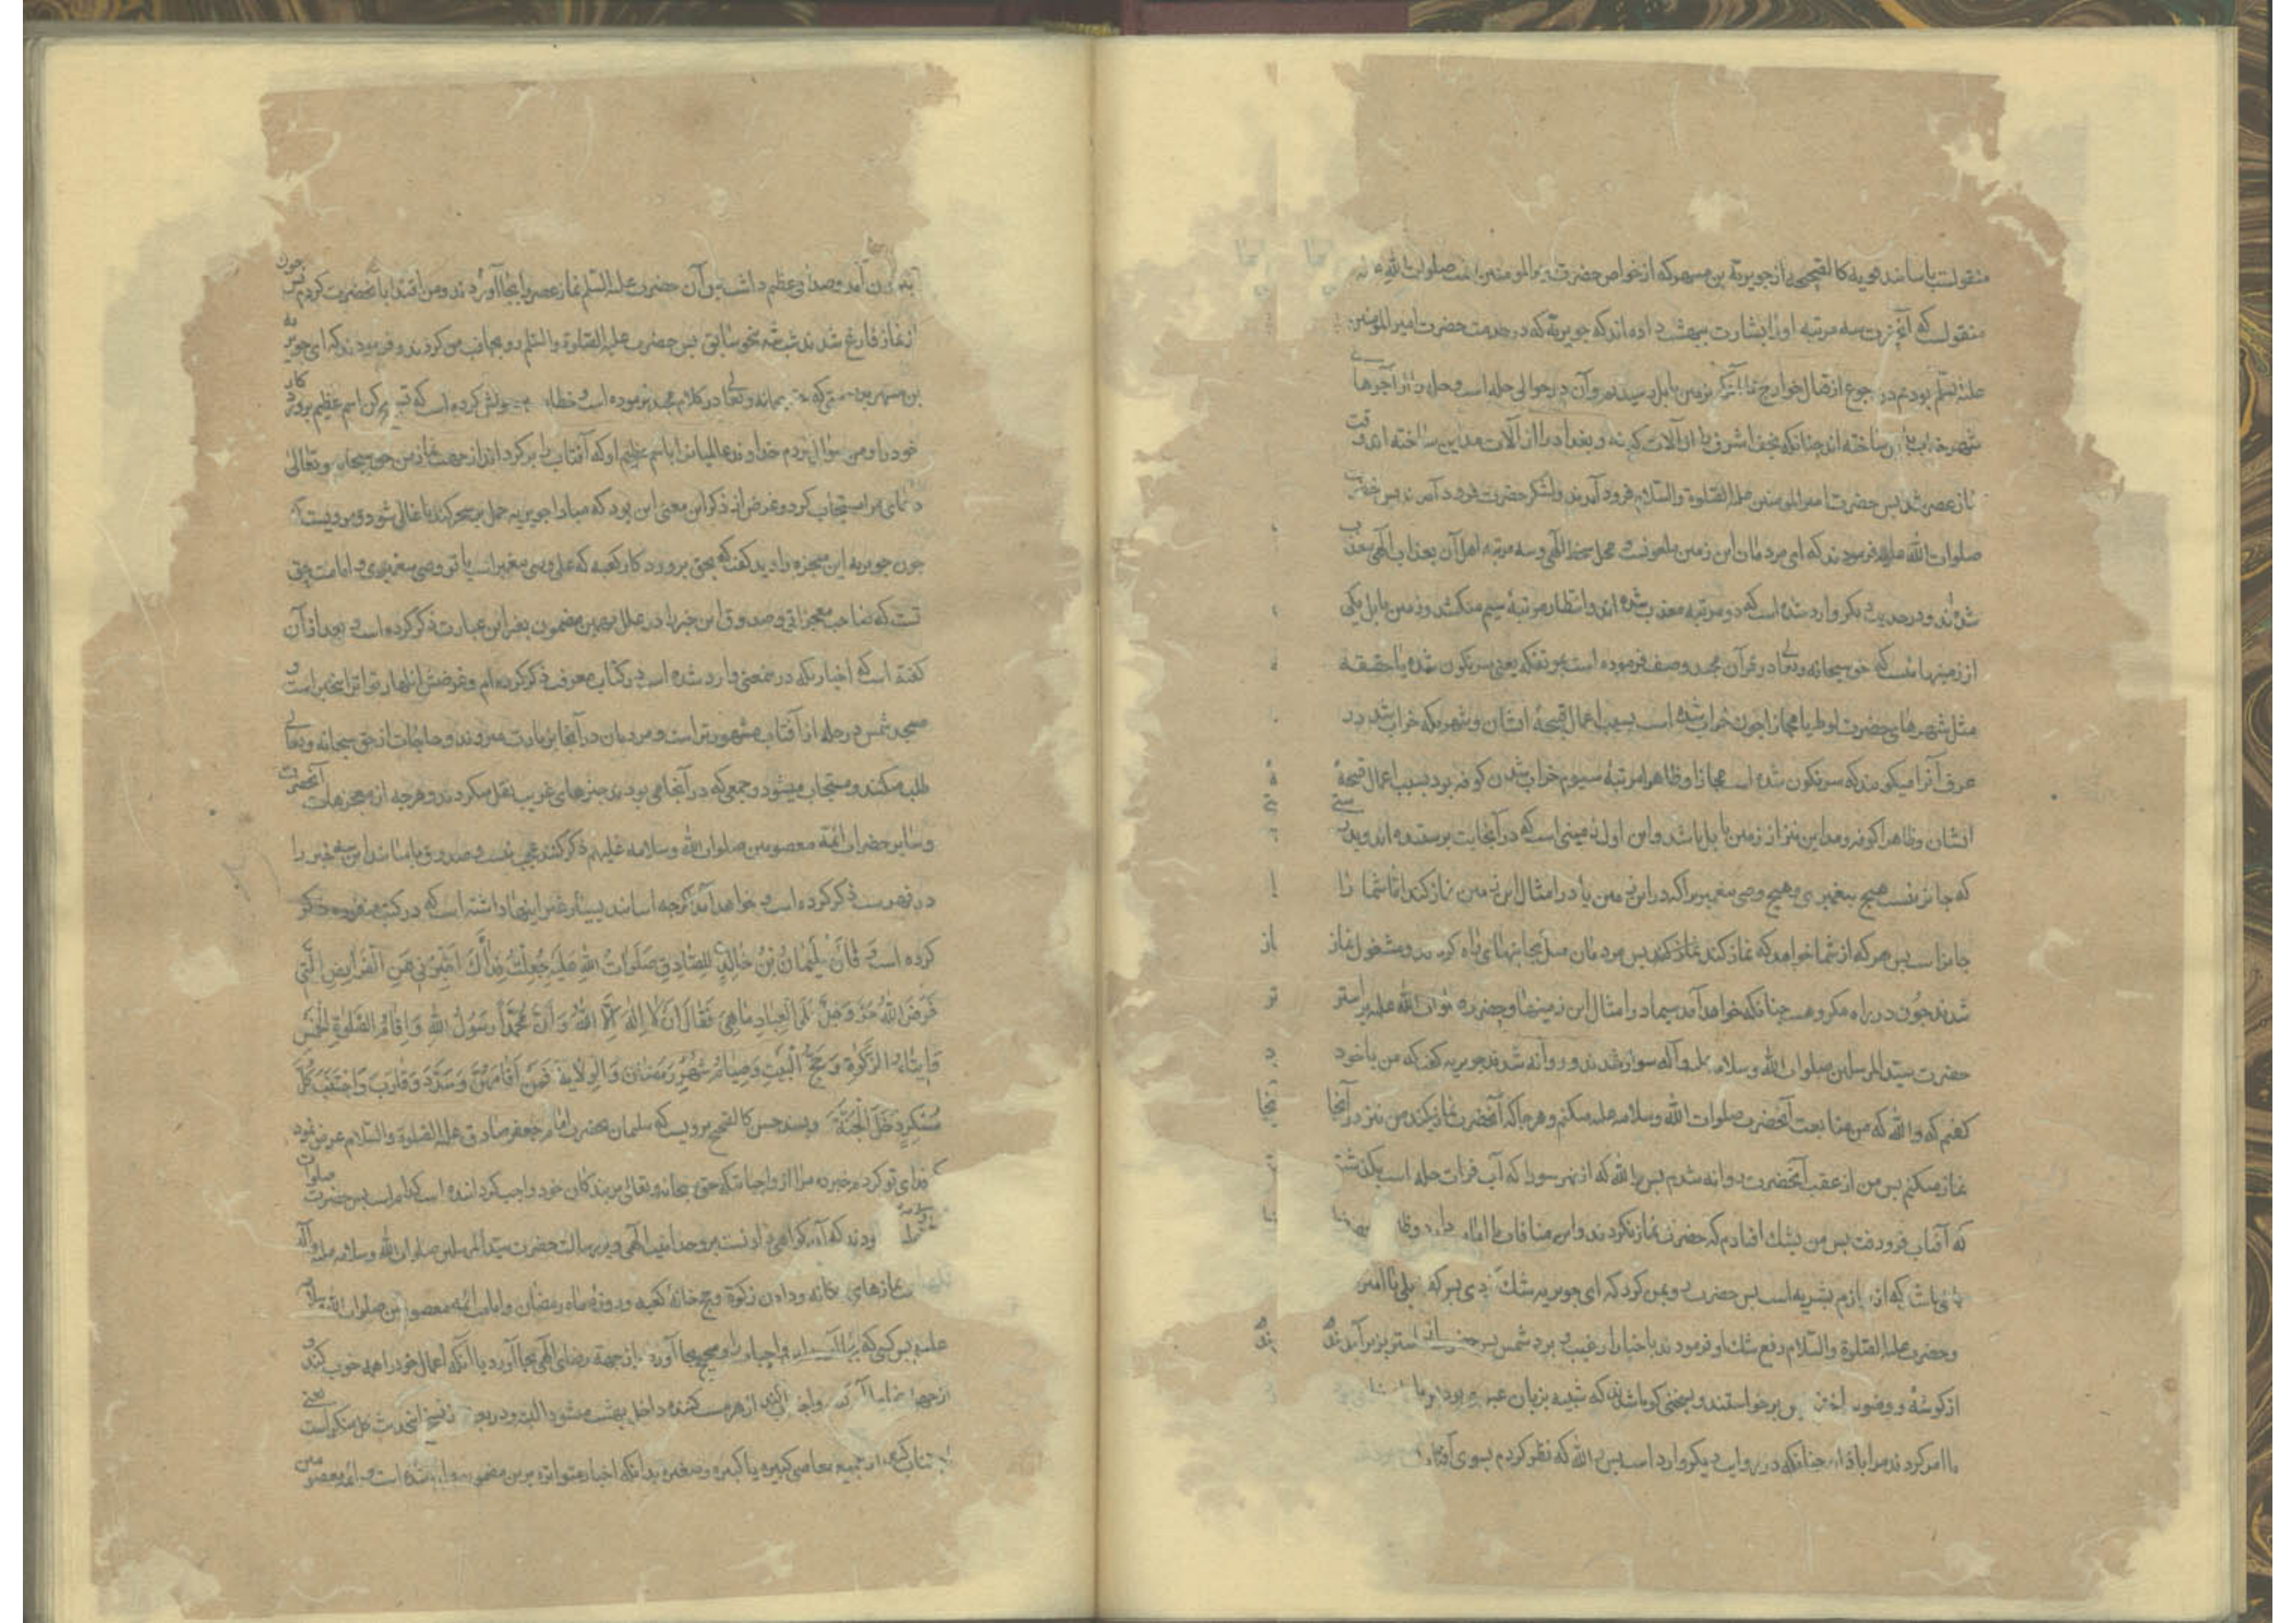 منقولست باسانید قویه کالصحیح از جویریة بن مسهر که از خواص حضرت امیر المومنین است صلوات الله علیه
منقولست که آنحضرت سه مرتبه او را بشارت بهشت داده اند که جویریة که در خدمت حضرت امیر المومنین
علیه السلم بودیم در رجوع از قتال خوارج تا آنکه بزمین بابل رسیدیم و آن در حوالی حله است و حله را از آجرهای
شهر خراب بابل ساخته اند چنانکه نجف اشرف را از آلات کوفه و بغداد را از آلات مداین ساخته اند وقت
نماز عصر شد پس حضرت امیر المومنین علیه الصلوة والسلام فرود آمدند و لشکر حضرت فرود آمدند پس حضرت
صلوات الله علیه فرمودند که ای مردمان این زمین ملعونست و محل سخط الهی و سه مرتبه اهل آن بعذاب الهی معذب
شده اند و در حدیث دیگر وارد شده است که دو مرتبه معذب شده اند و انتظار مرتبهٔ سیم میکشد و زمین بابل یکی
از زمینهائیست که حق سبحانه و تعالی در قرآن مجید وصف فرموده است بمؤتفکه یعنی سرنگون شده یا حقیقة
مثل شهرهای حضرت لوط یا مجازا چون خراب شده است بسبب اعمال قبیحهٔ ایشان و شهری که خراب شد در
عرف آنرا میگویند که سرنگون شده است مجازا و ظاهرا مرتبهٔ سیوم خراب شدن کوفه بود بسبب اعمال قبیحهٔ
ایشان و ظاهرا کوفه و مداین نیز از زمین بابل باشد و این اول زمینی است که در آنجا بت پرستیده اند و بدرستی
که جایز نیست هیچ پیغمبری و هیچ وصی پیغمبری را که در این زمین یا در امثال این زمین نماز کند اما شما را
جایز است پس هر که از شما خواهد که نماز کند نماز کند پس مردمان میل بجانبهای راه کردند و مشغول نماز
شدند چون در راه مکروهست چنانکه خواهد آمد سیما در امثال این زمینها و حضرت صلوات الله علیه بر استر
حضرت سید المرسلین صلوات الله و سلامه علیه و آله سوار شدند و روانه شدند جویریه گفت که من با خود
گفتم که والله که من متابعت آنحضرت صلوات الله وسلامه علیه میکنم و هرجا که آنحضرت نماز کند من نیز در آنجا
نماز میکنم پس من از عقب آنحضرت روانه شدم پس والله که از نهر سورا که آب فرات حله است نگذشتیم
که آفتاب فرو رفت پس من بشک افتادم که حضرت نماز نکردند و این منافات با امامت دارد
باشد که از لوازم بشریه است پس حضرت رو بمن کرد که ای جویریه شک کردی پس گفتم بلی یا امیر
وحضرت علیه الصلوة والسلام رفع شک او فرمودند باخبار از غیب و برد شمس پس حضرت از استر بزیر آمدند
از گوشهٔ و وضو ساختند پس برخواستند و بسخنی گویا شدند که شبیه بزبان عبری بود
یا امر کردند مرا باذان چنانکه در روایت دیگر وارد است پس والله که نظر کردم بسوی آفتاب
بیرون آمد وصدائی عظیم داشت پس آن حضرت علیه السلم نماز عصر را بجا آوردند و من اقتدا بآنحضرت کردم پس چون
از نماز فارغ شدند شب شد بنحو سابق پس حضرت علیه الصلوة والسلم رو بجانب من کردند و فرمودند که ای جویریه
بن مسهر بدرستی که حق سبحانه وتعالی در کلام مجید فرموده است و خطاب بحبیب خویش کرده است که تسبیح کن اسم عظیم پروردکار
خود را و من سؤال کردم خداوند عالمیانرا باسم عظیم او که آفتاب را بر گرداند از جهت نماز من حق سبحانه وتعالی
دعای مرا مستجاب کرد و غرض از ذکر این معنی این بود که مبادا جویریه حمل بر سحر کند یا غالی شود و مرویست که
چون جویریه این معجزه را دید گفت که بحق پروردکار کعبه که علی وصی پیغمبر است یا تو وصی پیغمبری و امامت حق
تست که صاحب معجزاتی و صدوق این خبر را در علل بهمین مضمون بغیر این عبارت ذکر کرده است و بعد از آن
گفته است که اخباریکه درین معنی وارد شده است در کتاب معرفت ذکر کرده ام و غرضش اظهار تواتر این خبر است و
مسجد شمس در حله از آفتاب مشهورتر است و مردمان در آنجا بزیارت میروند و حاجات از حق سبحانه وتعالی
طلب میکنند و مستجاب میشود و جمعی که در آنجا می بودند چیزهای غریب نقل میکردند و هرچه از معجزات آنحضرت
و سایر حضرات ائمهٔ معصومین صلوات الله وسلامه علیهم ذکر کنند عجب نیست و صدوق باسانید این سه خبر را
در فهرست ذکر کرده است و خواهد آمد اگرچه اسانید بسیار غیر اینها داشته است که در کتب متفرقه ذکر
کرده است وَ قَالَ سُلَیْمَانُ بْنُ خَالِدٍ لِلصَّادِقِ صَلَوَاتُ اللهِ عَلَیْهِ جُعِلْتُ فِدَاكَ اَخْبِرْنِي عَنِ الْفَرَایِضِ الَّتِي
فَرَضَ اللهُ عَزَّ وَجَلَّ عَلَی الْعِبَادِ مَا هِيَ فَقَالَ شَهَادَةُ اَنْ لَا اِلٰهَ اِلَّا اللهُ وَ اَنَّ مُحَمَّداً رَسُولُ اللهِ وَ اِقَامُ الصَّلَوٰةِ الْخَمْسِ
وَ اِیتَاءِ الزَّكَوٰةِ وَ حَجُّ الْبَیْتِ وَ صِیَامُ شَهْرِ رَمَضَانَ وَ الْوِلَایَةُ فَمَنْ اَقَامَهُنَّ وَ سَدَّدَ وَ قَارَبَ وَ اجْتَنَبَ كُلَّ
مُنْكَرٍ دَخَلَ الْجَنَّةَ و بسند حسن کالصحیح مرویست که سلیمان بحضرت امام جعفر صادق علیه الصلوة والسلام عرض نمود
که فدای تو کردم خبر ده مرا از واجباتیکه حق سبحانه و تعالی بر بندکان خود واجب کردانیده است کدام است پس حضرت صلوات
فرمودند که آن گواهی دادنست بوحدانیت الهی و برسالت حضرت سید المرسلین صلوات الله وسلامه علیه وآله
نمازهای پنجگانه و دادن زکوة و حج خانهٔ کعبه و روزهٔ ماه رمضان و امامت ائمه معصومین صلوات الله
علیهم پس کسی که واجبات را صحیح بجا آورد و از جهة رضای الهی بجا آورد یا آنکه اعمال خود را همه خوب کند
واجتناب کند از هر منکری داخل بهشت میشود البته و در بعضی نسخ این حدیث کل منکر است
اجتناب کند از جمیع معاصی کبیره یا کبیره و صغیره بدانکه اخبار متواتره برین مضمون وارد شده است و ائمه معصومین